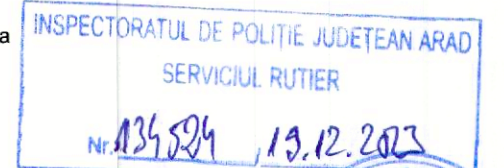 a
INSPECTORATUL DE POLIȚIE JUDEȚEAN ARAD
SERVICIUL RUTIER
Nr. 134524 / 19.12.2023